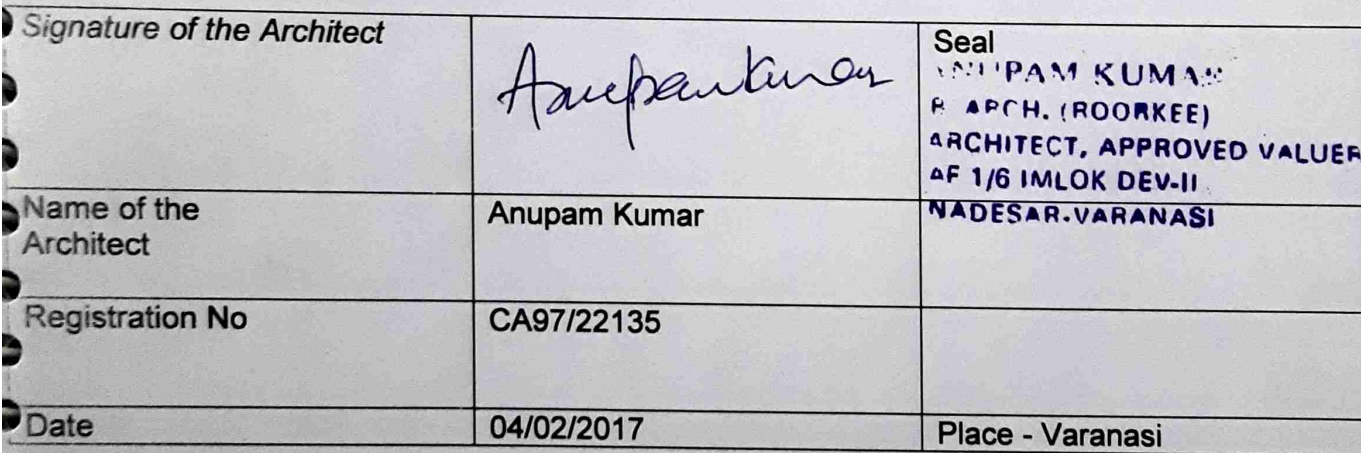 Signature of the Architect
Anupam Kumar
Seal
ANUPAM KUMAR
B ARCH. (ROORKEE)
ARCHITECT, APPROVED VALUER
AF 1/6 IMLOK DEV-II
NADESAR.VARANASI
Name of the
Architect
Anupam Kumar
Registration No
CA97/22135
Date
04/02/2017
Place - Varanasi